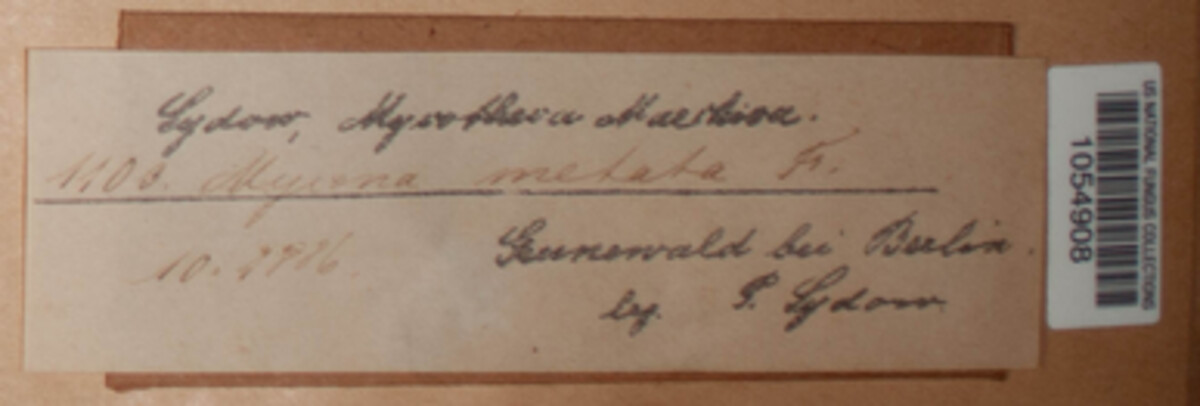 Sydow, Mycotheca Marchica.
1103. Mycena metata Fr.
Grunewald bei Berlin.
10.
leg. P. Sydow
US NATIONAL FUNGUS COLLECTIONS
1054908